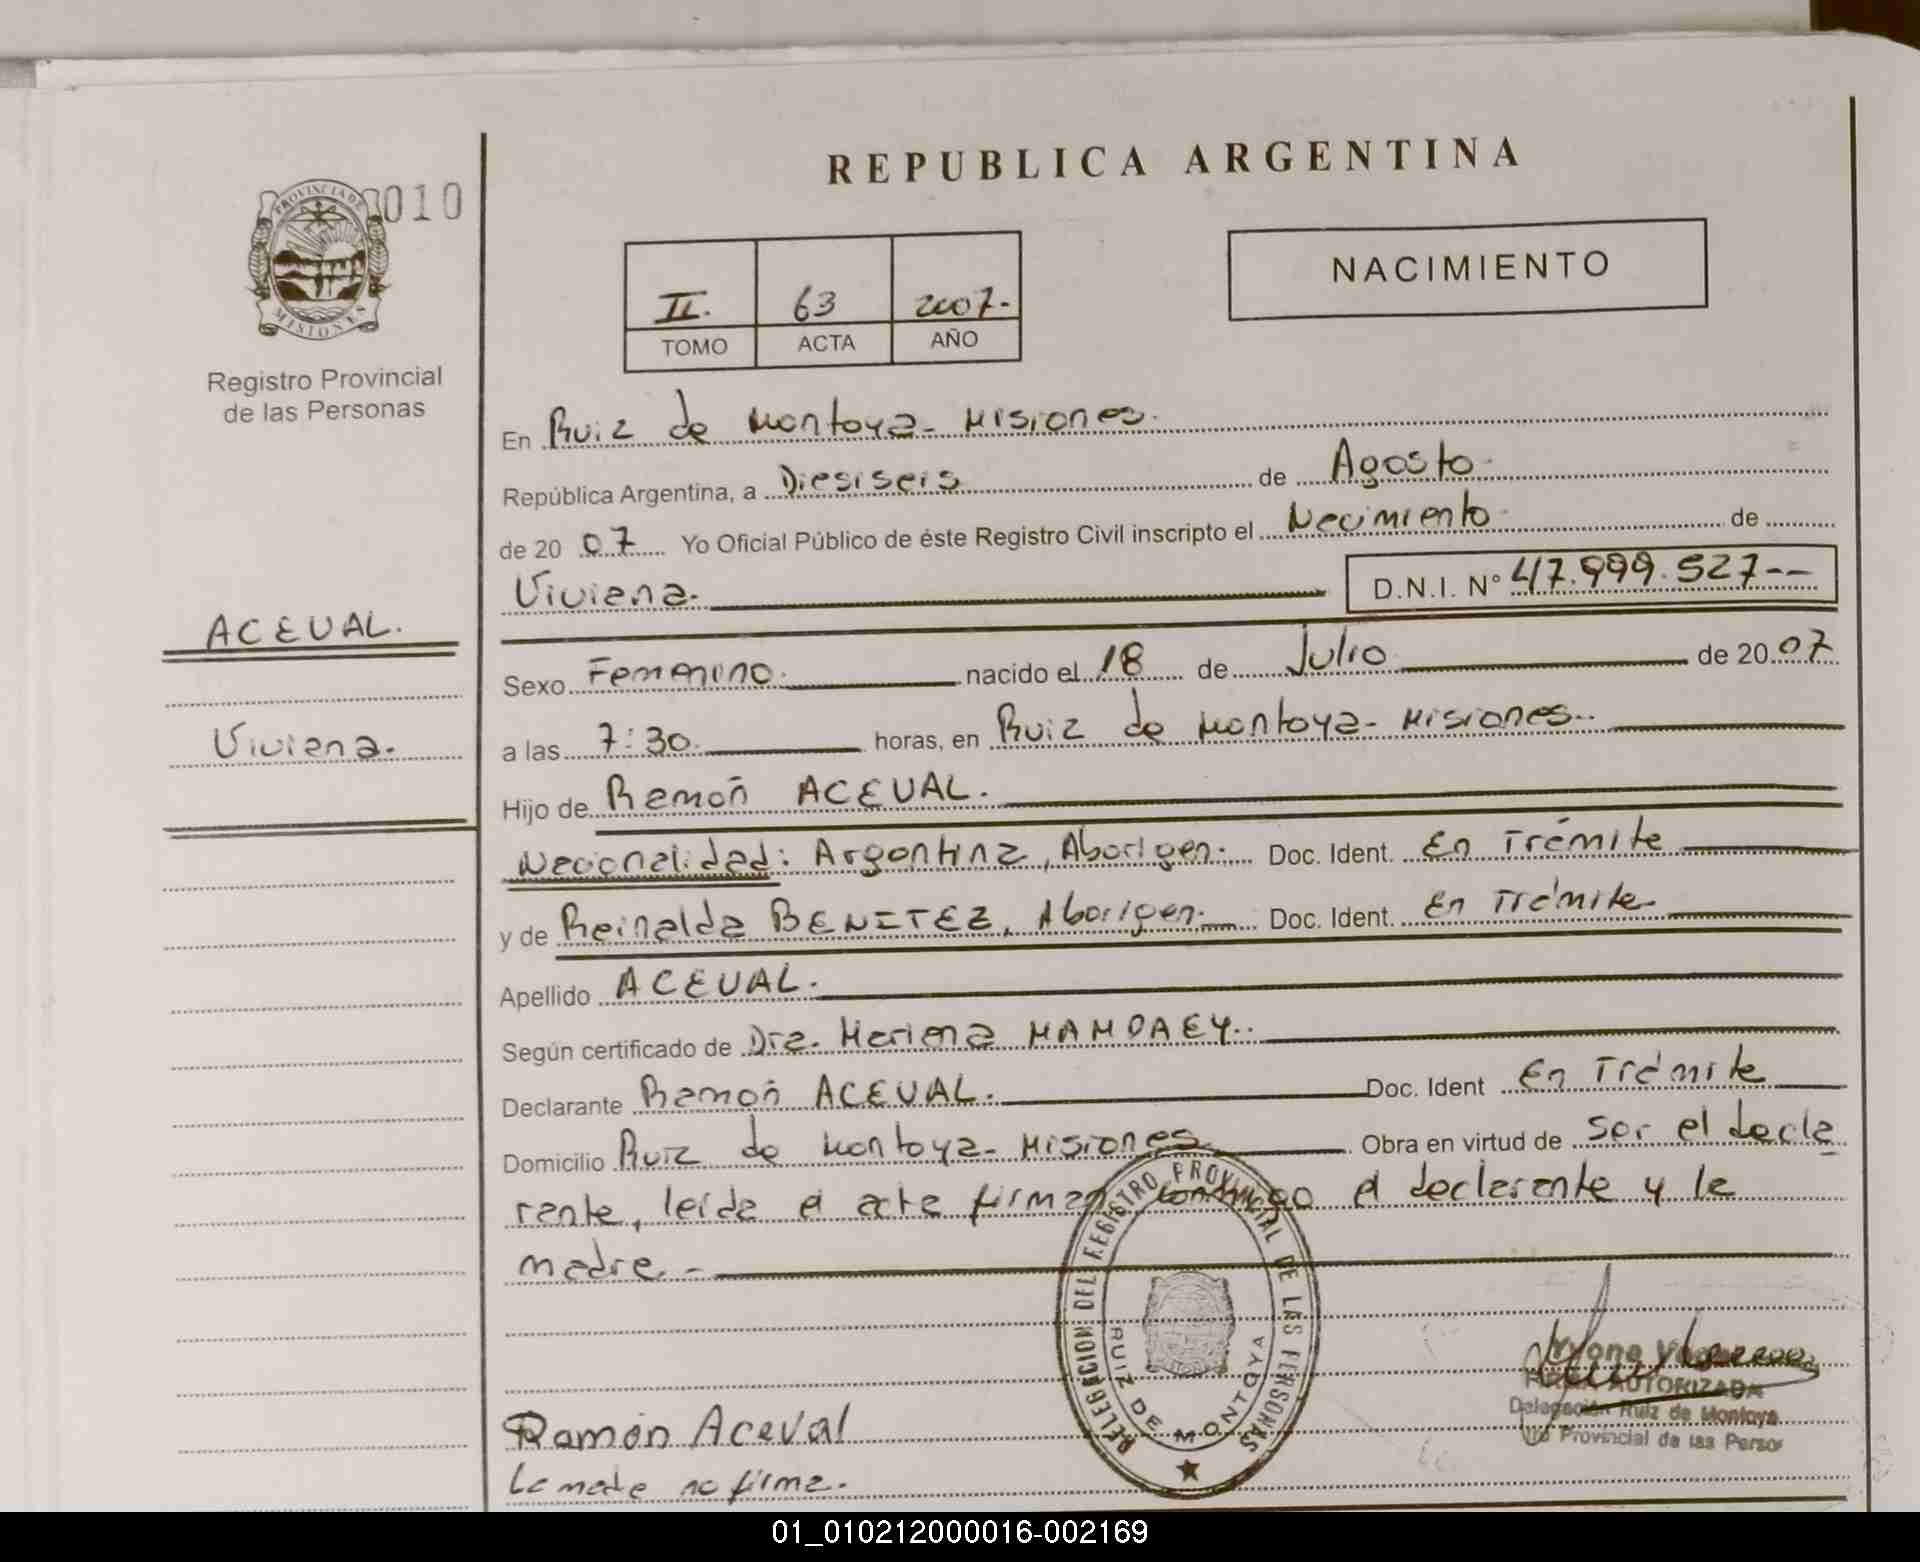 REPUBLICA ARGENTINA
010
PROVINCIA DE
MISIONES
NACIMIENTO
II. 63 2007.
TOMO ACTA AÑO
Registro Provincial
de las Personas
En Ruiz de Montoya - Misiones.
República Argentina, a Diesiseis de Agosto
de 20 07 Yo Oficial Público de éste Registro Civil inscripto el Nacimiento de
Viviana. D.N.I. Nº 47.999.527--
ACEVAL.
Sexo Femenino. nacido el 18 de Julio de 20 07
Viviana.
a las 7:30. horas, en Ruiz de Montoya - Misiones..
Hijo de Ramón ACEVAL.
Nacionalidad: Argentina, Aborigen. Doc. Ident. En Trámite
y de Reinalda BENITEZ, Aborigen. Doc. Ident. En Trámite
Apellido ACEVAL.
Según certificado de Dra. Mariena
Declarante Ramón ACEVAL. Doc. Ident En Trámite
Domicilio Ruiz de Montoya - Misiones. Obra en virtud de ser el decla
rante, leída el acta firman conmigo el declarante y la
madre. -
DELEGACION DEL REGISTRO PROVINCIAL DE LAS PERSONAS
RUIZ DE MONTOYA
FIRMA AUTORIZADA
Delegación Ruiz de Montoya
Provincial de las Person
Ramón Aceval
La madre no firma.
01_010212000016-002169